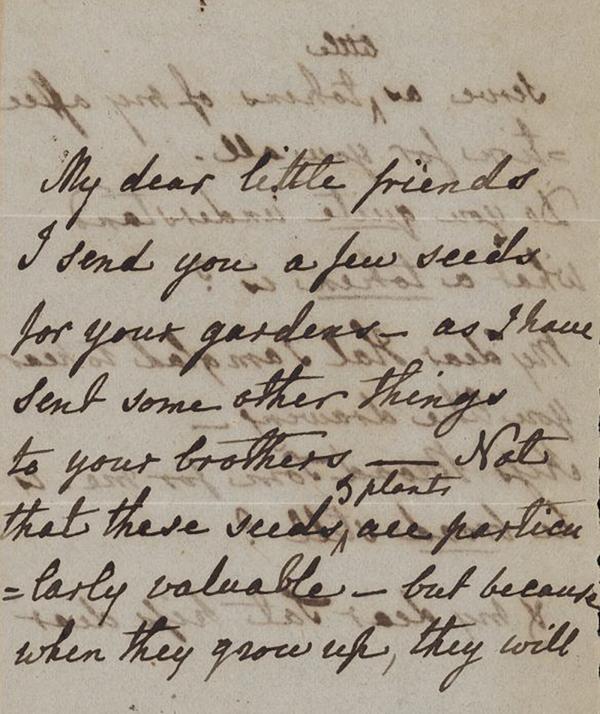 My dear little friends
I send you a few seeds
for your gardens – as I have
sent some other things
to your brothers — Not
& plants
that these seeds^ are particu
=larly valuable – but because
when they grow up, they will